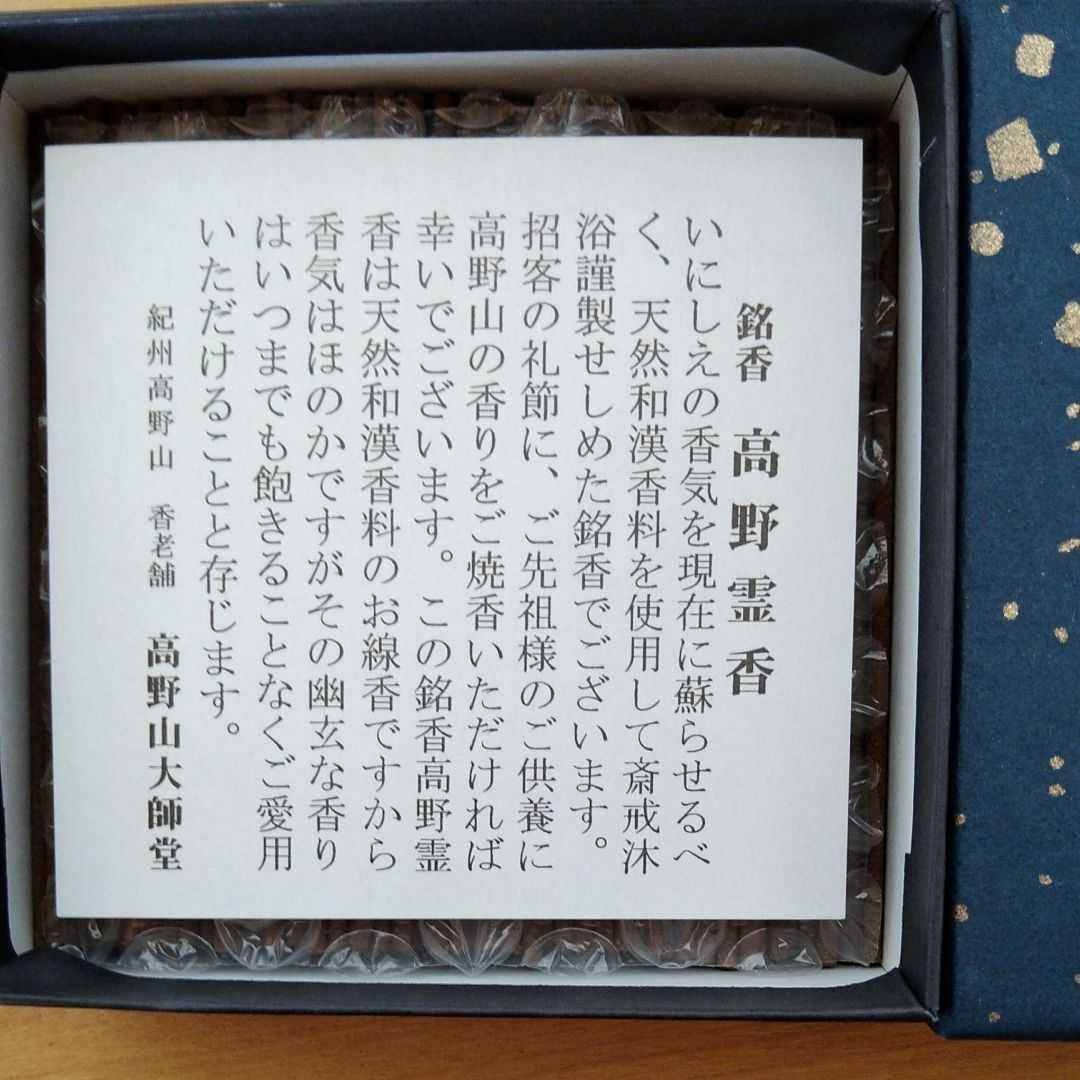 銘香 高野霊香
いにしえの香気を現在に蘇らせるべ
く、天然和漢香料を使用して斎戒沐
浴謹製せしめた銘香でございます。
招客の礼節に、ご先祖様のご供養に
高野山の香りをご焼香いただければ
幸いでございます。この銘香高野霊
香は天然和漢香料のお線香ですから
香気はほのかですがその幽玄な香り
はいつまでも飽きることなくご愛用
いただけることと存じます。
紀州高野山 香老舗 高野山大師堂